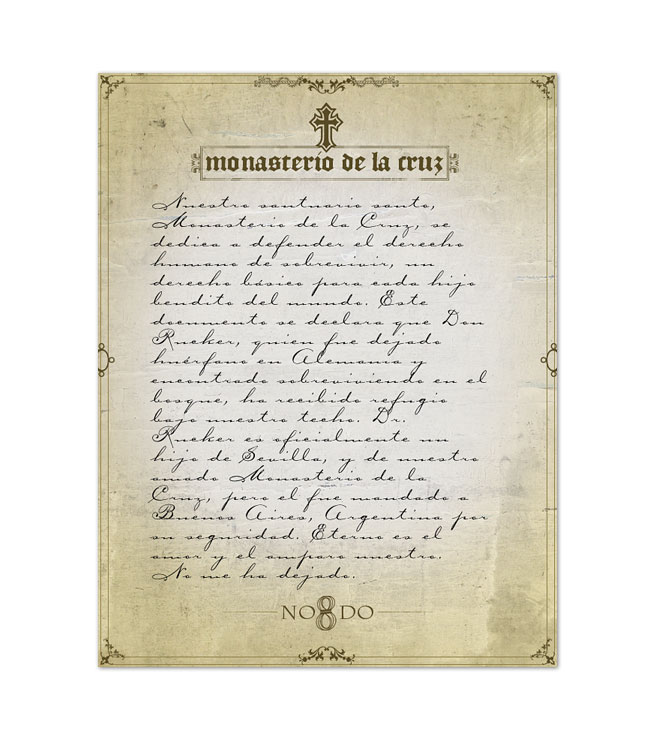 monasterio de la cruz
Nuestro santuario santo,
Monasterio de la Cruz, se
dedica a defender el derecho
humano de sobrevivir, un
derecho básico para cada hijo
bendito del mundo. Este
documento se declara que Don
Rucker, quien fue dejado
huérfano en Alemania y
encontrado sobreviviendo en el
bosque, ha recibido refugio
bajo nuestro techo. Dr.
Rucker es oficialmente un
hijo de Sevilla, y de nuestro
amado Monasterio de la
Cruz, pero el fue mandado a
Buenos Aires, Argentina por
su seguridad. Eterno es el
amor y el amparo nuestro.
No me ha dejado.
NO8DO